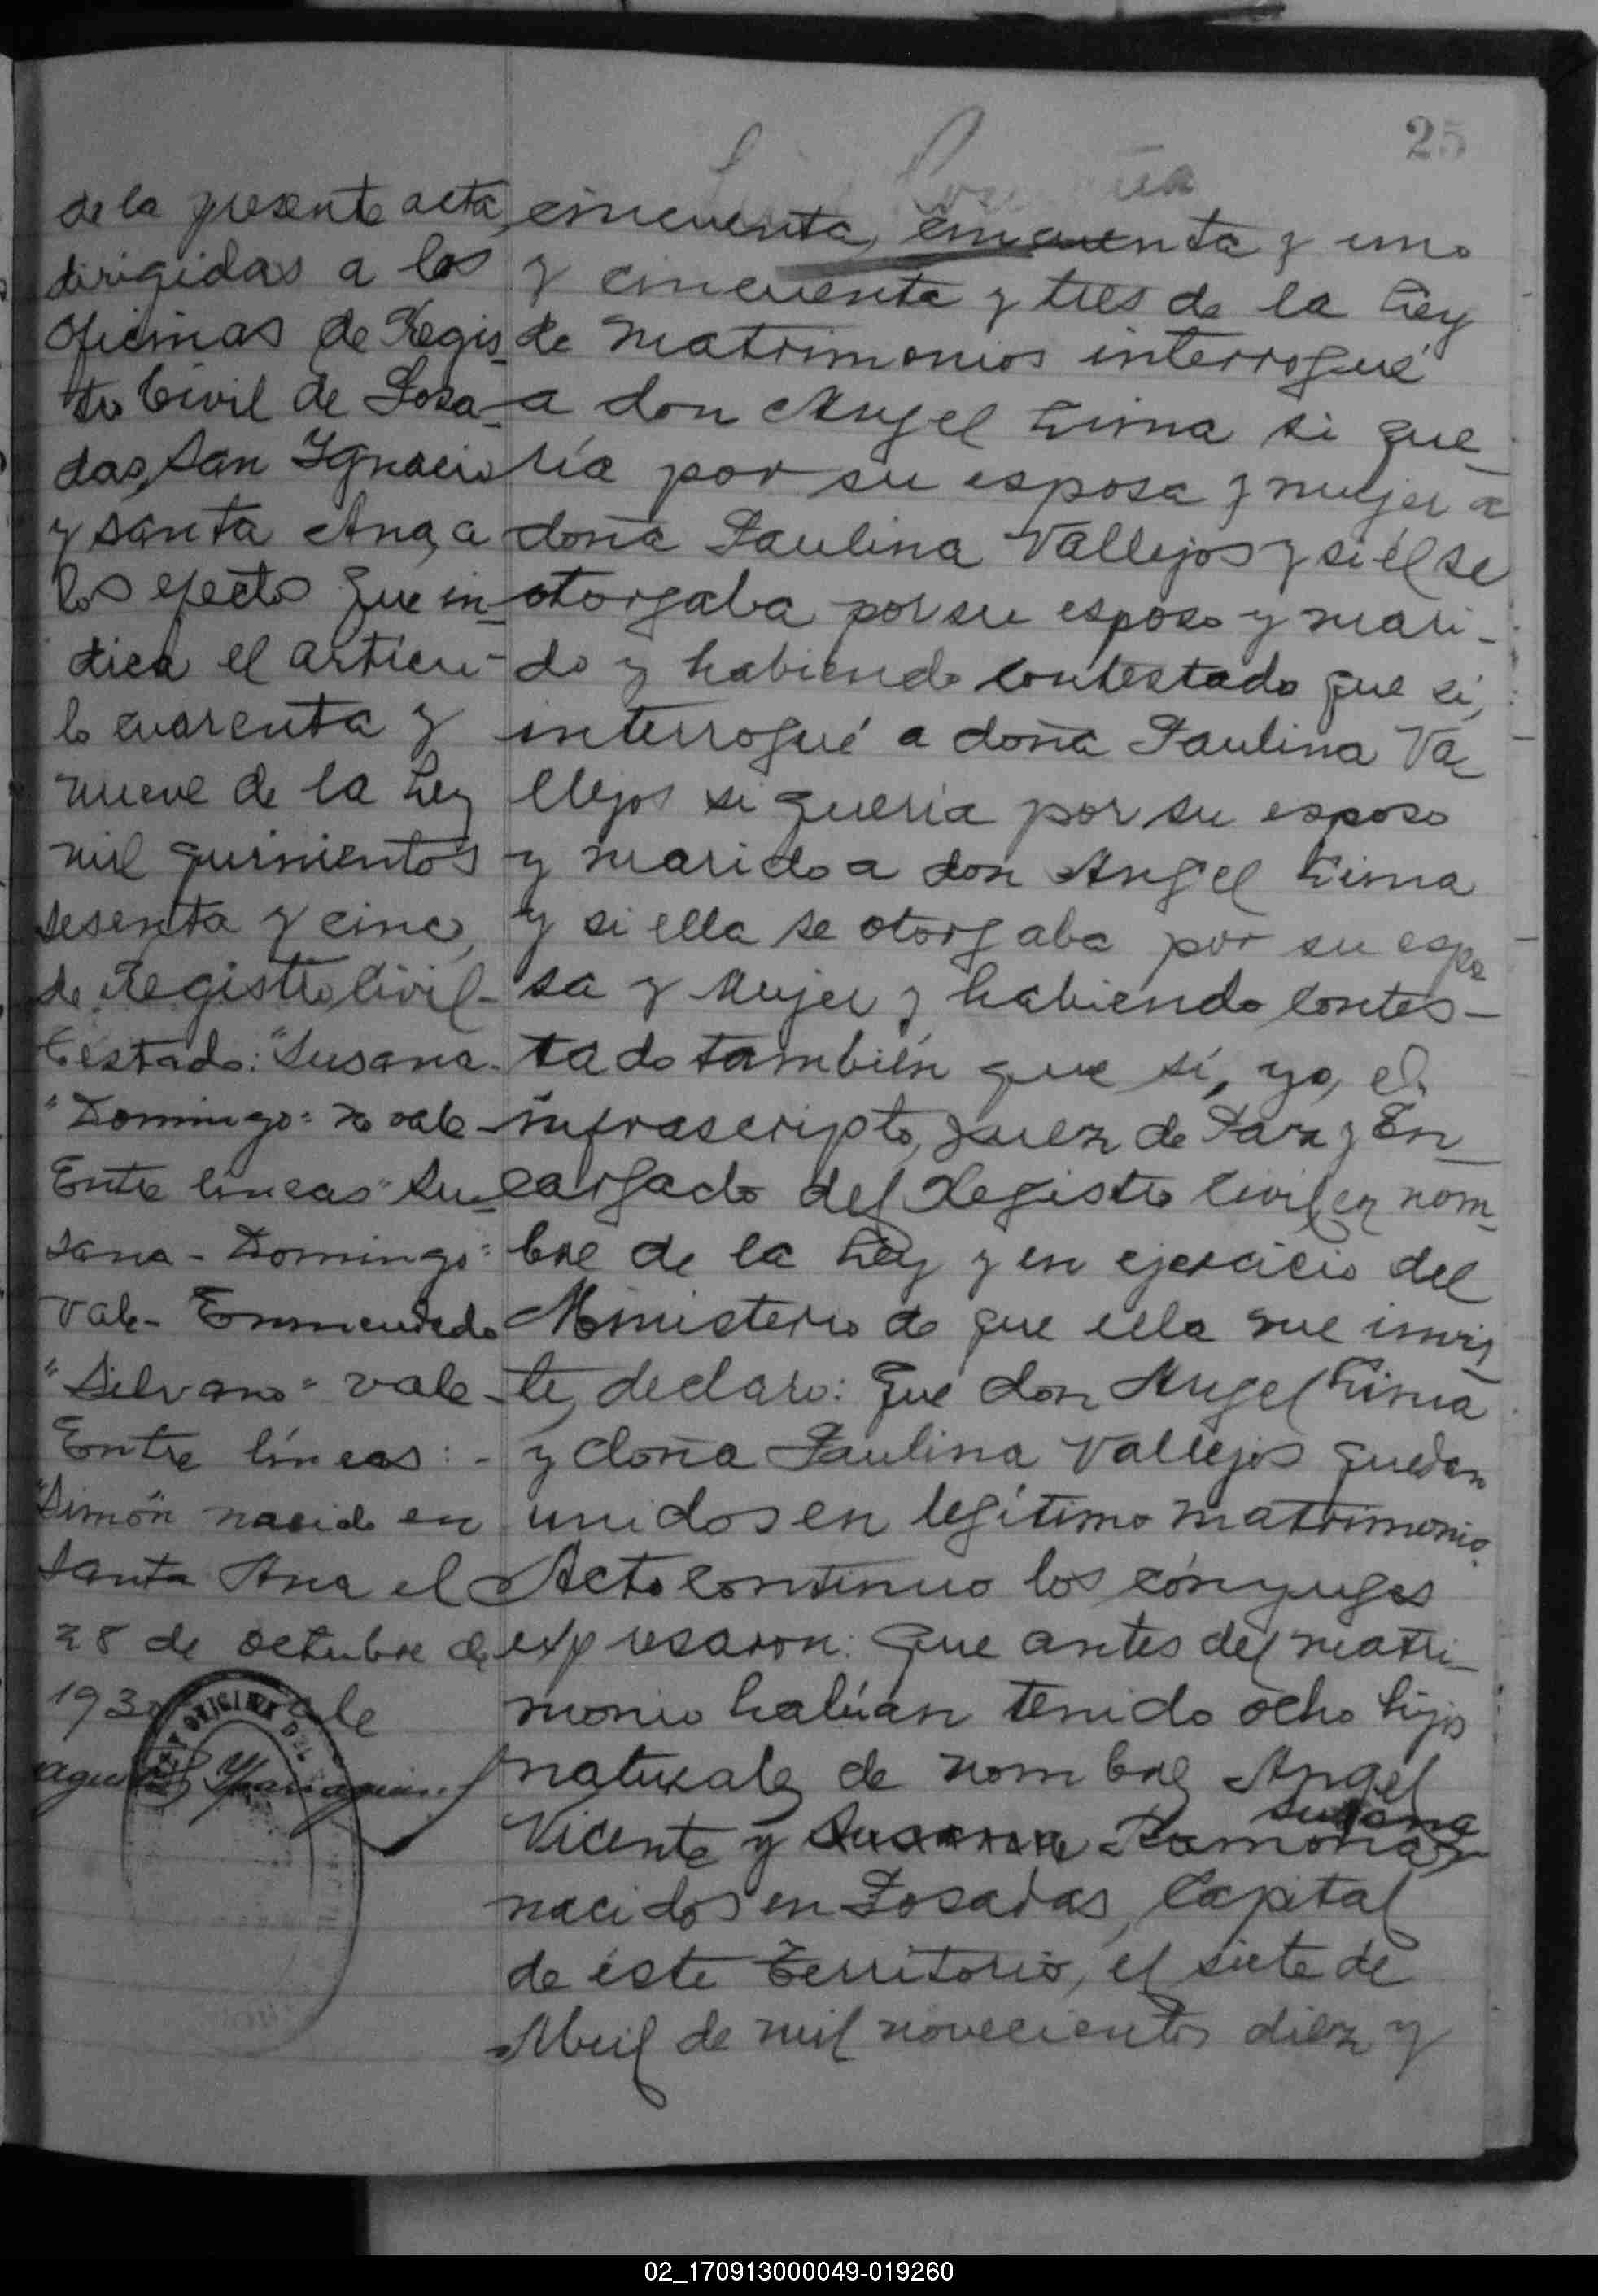 25
de la presente acta,
dirigidas a las
Oficinas de Regis-
tro Civil de Posa-
das, San Ignacio
y Santa Ana, a
los efecto que in-
dica el artícu-
lo cuarenta y
nueve de la Ley
mil quinientos
sesenta y cinco,
de Registro Civil-
Testado: "Susana-
"Domingo" no vale
Entre líneas "Su-
sana - Domingo"
Vale - Enmendado
"Silvano" vale-
Entre líneas: -
"Simón" nacido en
Santa Ana el
28 de octubre de
193 vale
cincuenta, cincuenta y uno
y cincuenta y tres de la Ley
de Matrimonios interrogué
a don Angel Lima si que-
ría por su esposa y mujer a
doña Paulina Vallejos y si él se
otorgaba por su esposo y mari-
do y habiendo contestado que sí,
interrogué a doña Paulina Va-
llejos si quería por su esposo
y marido a don Angel Lima
y si ella se otorgaba por su espo
sa y Mujer y habiendo contes-
tado también que sí, yo, el
infrascripto, Juez de Paz y En-
cargado del Registro Civil en nom-
bre de la Ley y en ejercicio del
Ministerio de que ella me invis-
te, declaro: Que don Angel Lima
y doña Paulina Vallejos quedan
unidos en legítimo matrimonio.
Acto continuo los cónyuges
expresaron: Que antes del matri-
monio habían tenido ocho hijos
naturales de nombres Angel
Susana
Vicente y Susana Ramona,
nacidos en Posadas, Capital
de éste Territorio, el siete de
Abril de mil novecientos diez y
02_170913000049-019260